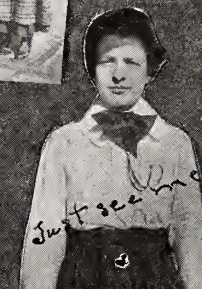 Just see me